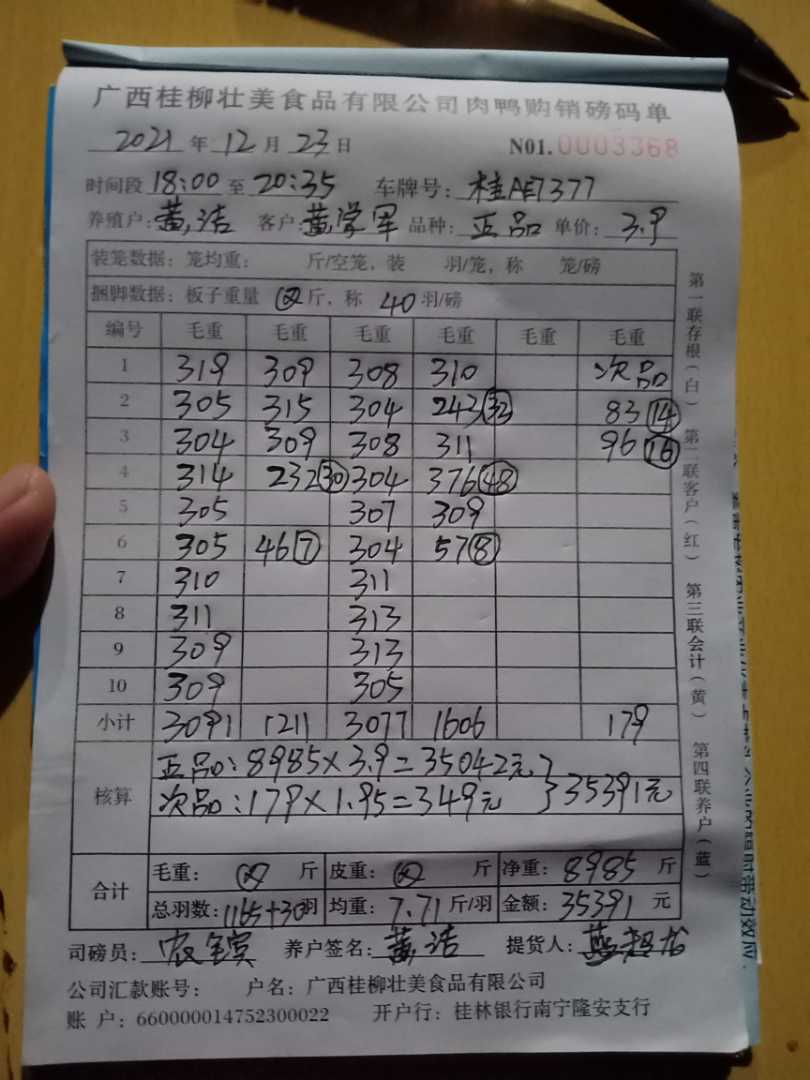 广西桂柳壮美食品有限公司肉鸭购销磅码单
2021 年 12 月 23 日 N01.0003368
时间段 18:00 至 20:35 车牌号: 桂AE7377
养殖户: 黄洁 客户: 黄学军 品种: 正品 单价: 3.9
装笼数据: 笼均重: 斤/空笼, 装 羽/笼, 称 笼/磅
捆脚数据: 板子重量 斤, 称 40 羽/磅
编号 毛重 毛重 毛重 毛重 毛重 毛重
1 319 309 308 310 次品
2 305 315 304 243(32) 83(14)
3 304 309 308 311 96(16)
4 314 232(30) 304 376(48)
5 305 307 309
6 305 46(7) 304 57(8)
7 310 311
8 311 313
9 309 313
10 309 305
小计 3091 1211 3077 1606 179
核算 正品: 8985×3.9=35042元
次品: 179×1.95=349元 }35391元
合计 毛重: 斤 皮重: 斤 净重: 8985 斤
总羽数: 1165+30羽 均重: 7.71 斤/羽 金额: 35391 元
司磅员: 养户签名: 黄洁 提货人:
公司汇款账号: 户名: 广西桂柳壮美食品有限公司
账 户: 660000014752300022 开户行: 桂林银行南宁隆安支行
第一联存根(白) 第二联客户(红) 第三联会计(黄) 第四联养户(蓝)